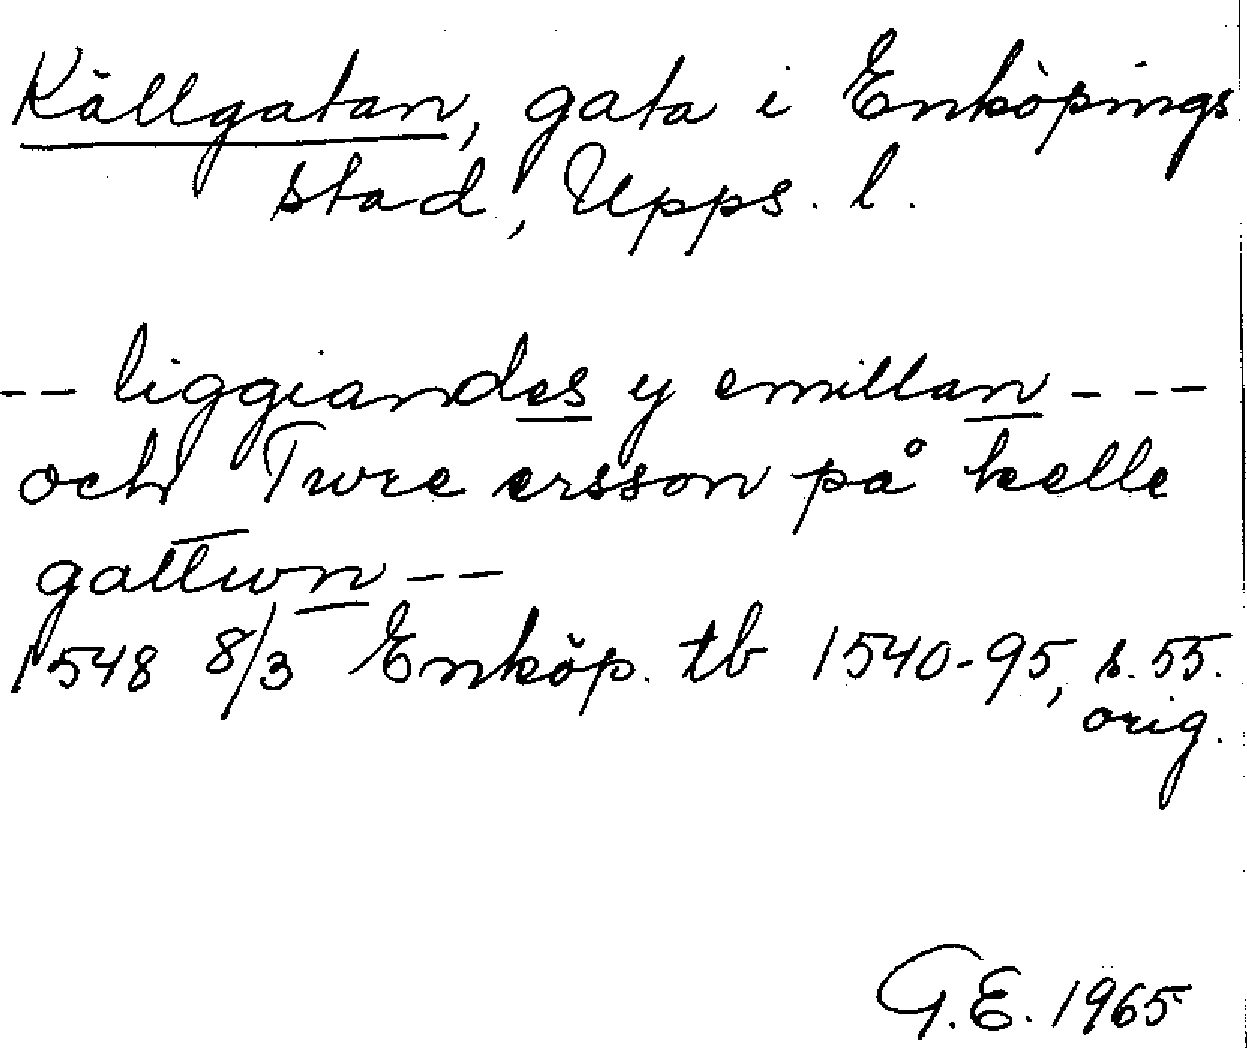 Källgatan, gata i Enköpings
stad, Upps. l.
-- liggiandes y emillan ---
och Twre ersson på kelle
gattwn --
1548 8/3 Enköp. tb 1540-95, s. 55.
orig.
G.E. 1965